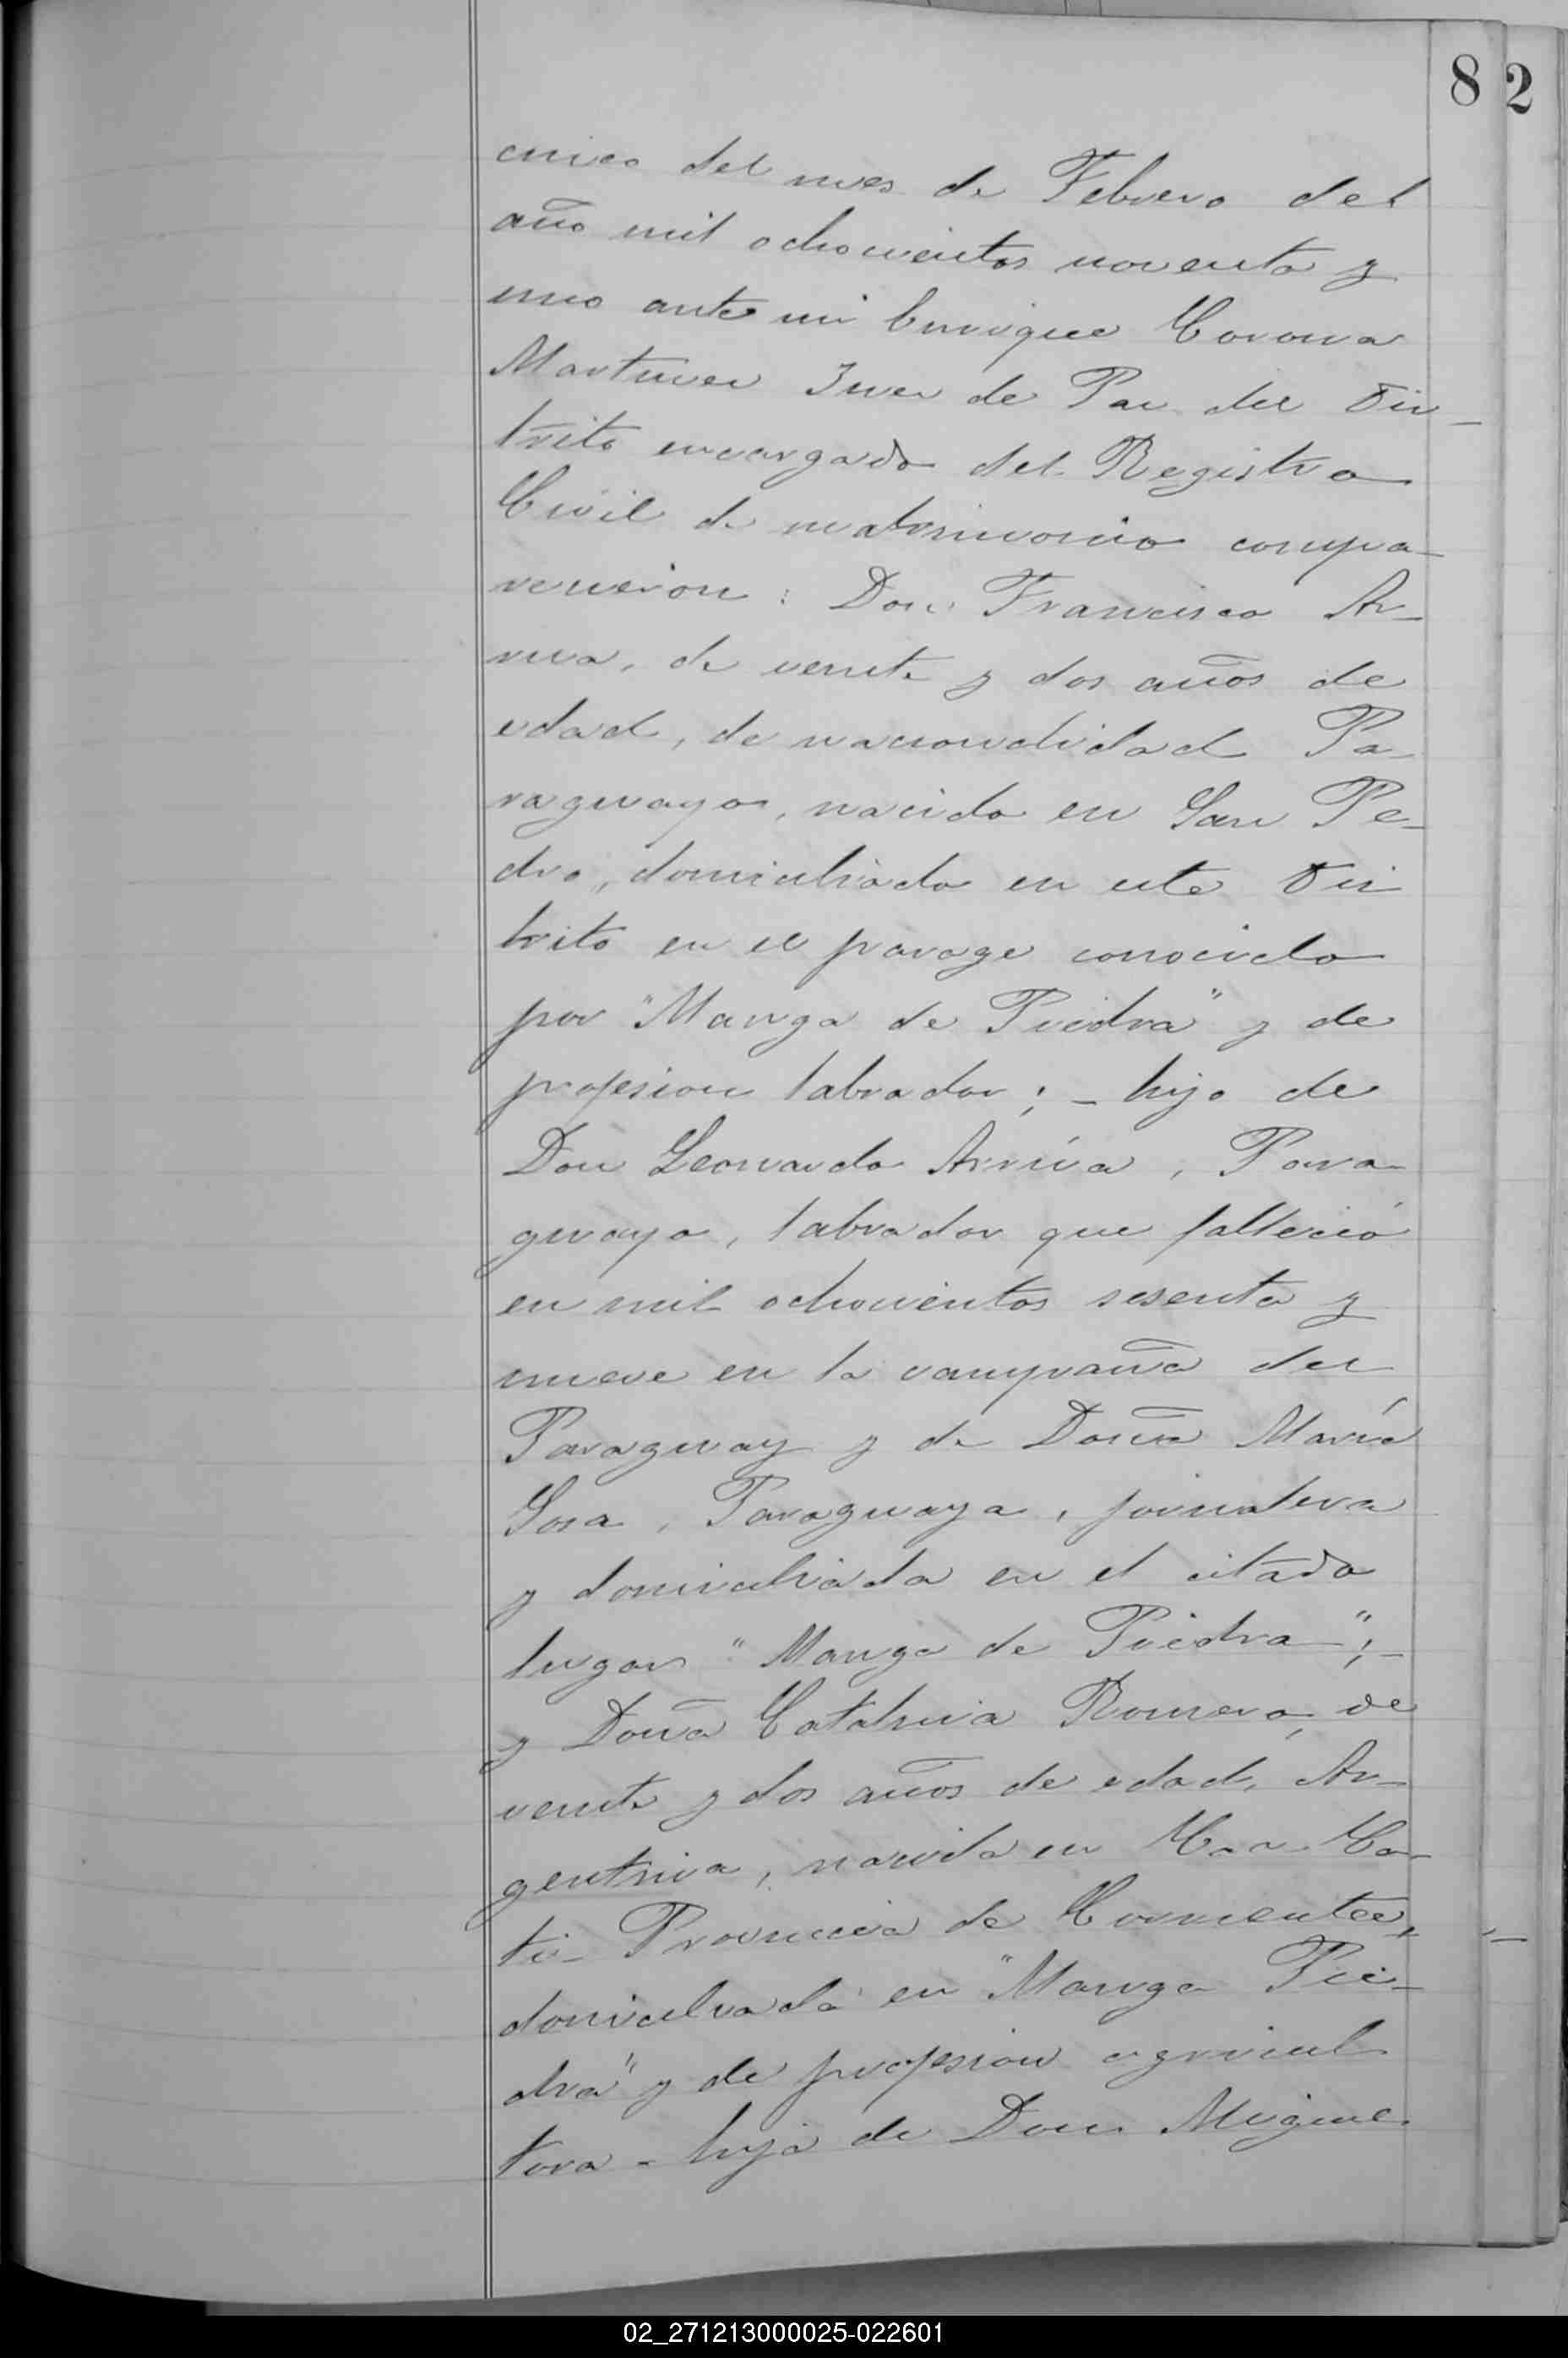 8 2
cinco del mes de Febrero del
año mil ochocientos noventa y
uno ante mi Enrique Corona
Martinez Juez de Paz del Dis-
trito encargado del Registro
Civil de matrimonio compa-
recieron: Don Francisco Ar-
rua, de veinte y dos años de
edad, de nacionalidad Pa-
raguayo, nacido en San Pe-
dro, domiciliado en este Dis
trito en el parage conocido
por "Manga de Piedra" y de
profesion labrador; - hijo de
Don Leonardo Arrúa, Para-
guayo, labrador que falleció
en mil ochocientos sesenta y
nueve en la campaña del
Paraguay y de Doña María
Sosa, Paraguaya, jornalera
y domiciliada en el citado
lugar "Manga de Piedra"; -
y Doña Catalina Romero, de
veinte y dos años de edad, Ar-
gentina, nacida en Caa Ca-
ti - Provincia de Corrientes,
domiciliada en "Manga Pie-
dra" y de profesion agricul
tora - hija de Don Miguel
02_271213000025-022601